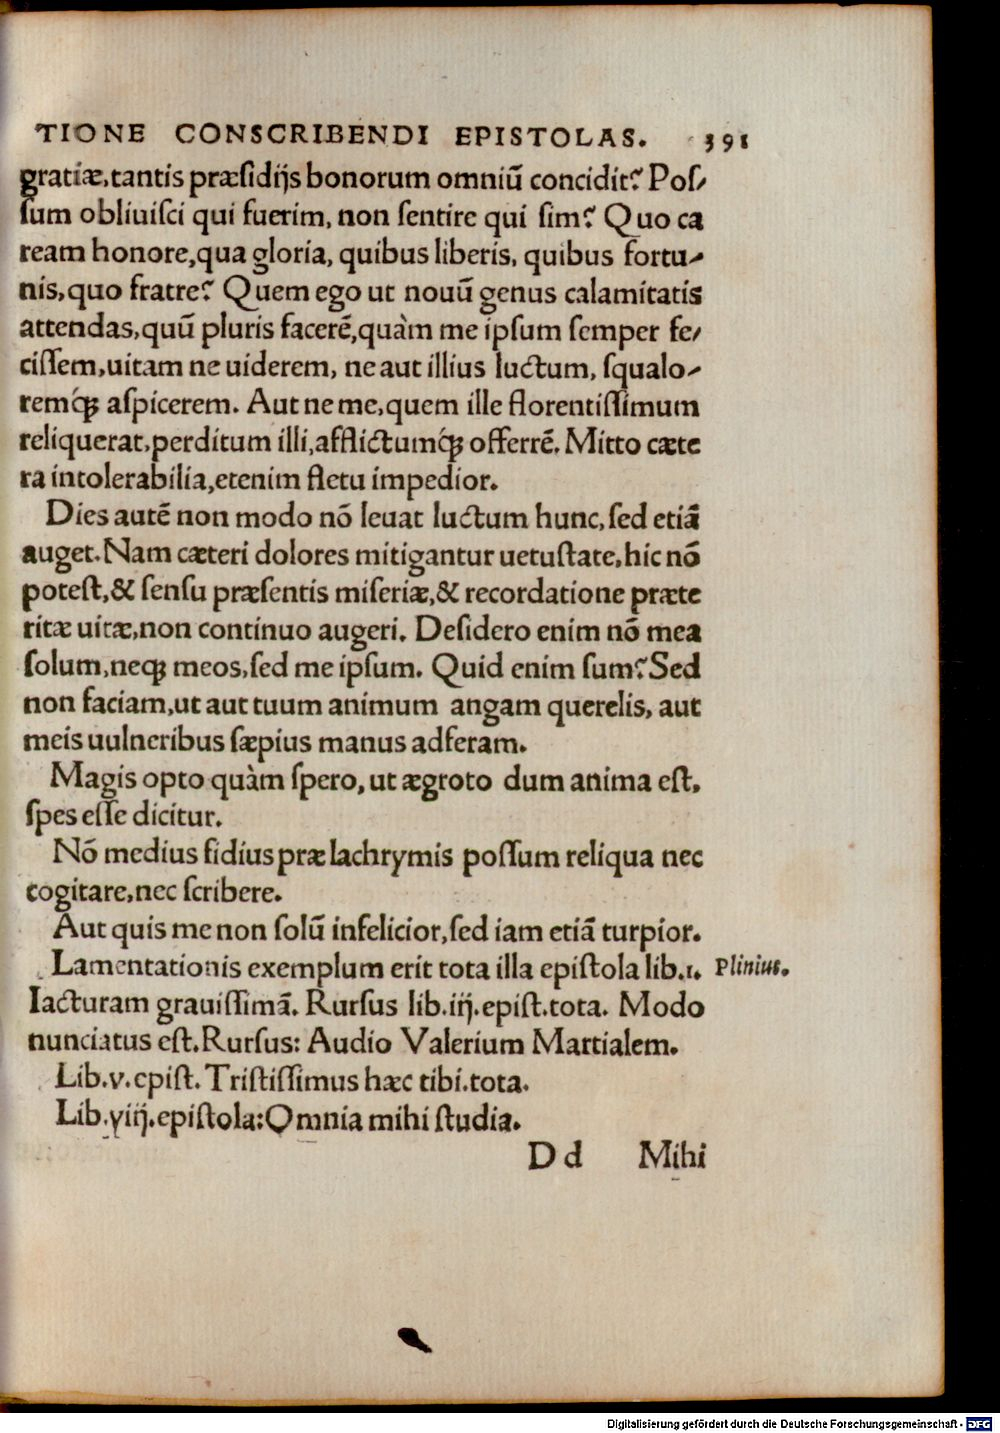 TIONE CONSCRIBENDI EPISTOLAS. 391
gratiæ, tantis præsidijs bonorum omniũ concidit? Pos-
sum obliuisci qui fuerim, non sentire qui sim? Quo ca
ream honore, qua gloria, quibus liberis, quibus fortu-
nis, quo fratre? Quem ego ut nouũ genus calamitatis
attendas, quũ pluris facerẽ, quàm me ipsum semper fe-
cissem, uitam ne uiderem, ne aut illius luctum, squalo-
remq́ꝫ aspicerem. Aut ne me, quem ille florentissimum
reliquerat, perditum illi, afflictumq́ꝫ offerrẽ. Mitto cæte
ra intolerabilia, etenim fletu impedior.
Dies autẽ non modo nõ leuat luctum hunc, sed etiã
auget. Nam cæteri dolores mitigantur uetustate, hic nõ
potest, & sensu præsentis miseriæ, & recordatione præte
ritæ uitæ, non continuo augeri. Desidero enim nõ mea
solum, neqꝫ meos, sed me ipsum. Quid enim sum? Sed
non faciam, ut aut tuum animum angam querelis, aut
meis uulneribus sæpius manus adferam.
Magis opto quàm spero, ut ægroto dum anima est,
spes esse dicitur.
Nõ medius fidius præ lachrymis possum reliqua nec
cogitare, nec scribere.
Aut quis me non solũ infelicior, sed iam etiã turpior.
Lamentationis exemplum erit tota illa epistola lib.1. Plinius.
Iacturam grauissimã. Rursus lib.iij.epist.tota. Modo
nunciatus est. Rursus: Audio Valerium Martialem.
Lib.v.epist. Tristissimus hæc tibi.tota.
Lib.viij.epistola: Omnia mihi studia.
D d Mihi
Digitalisierung gefördert durch die Deutsche Forschungsgemeinschaft - DFG